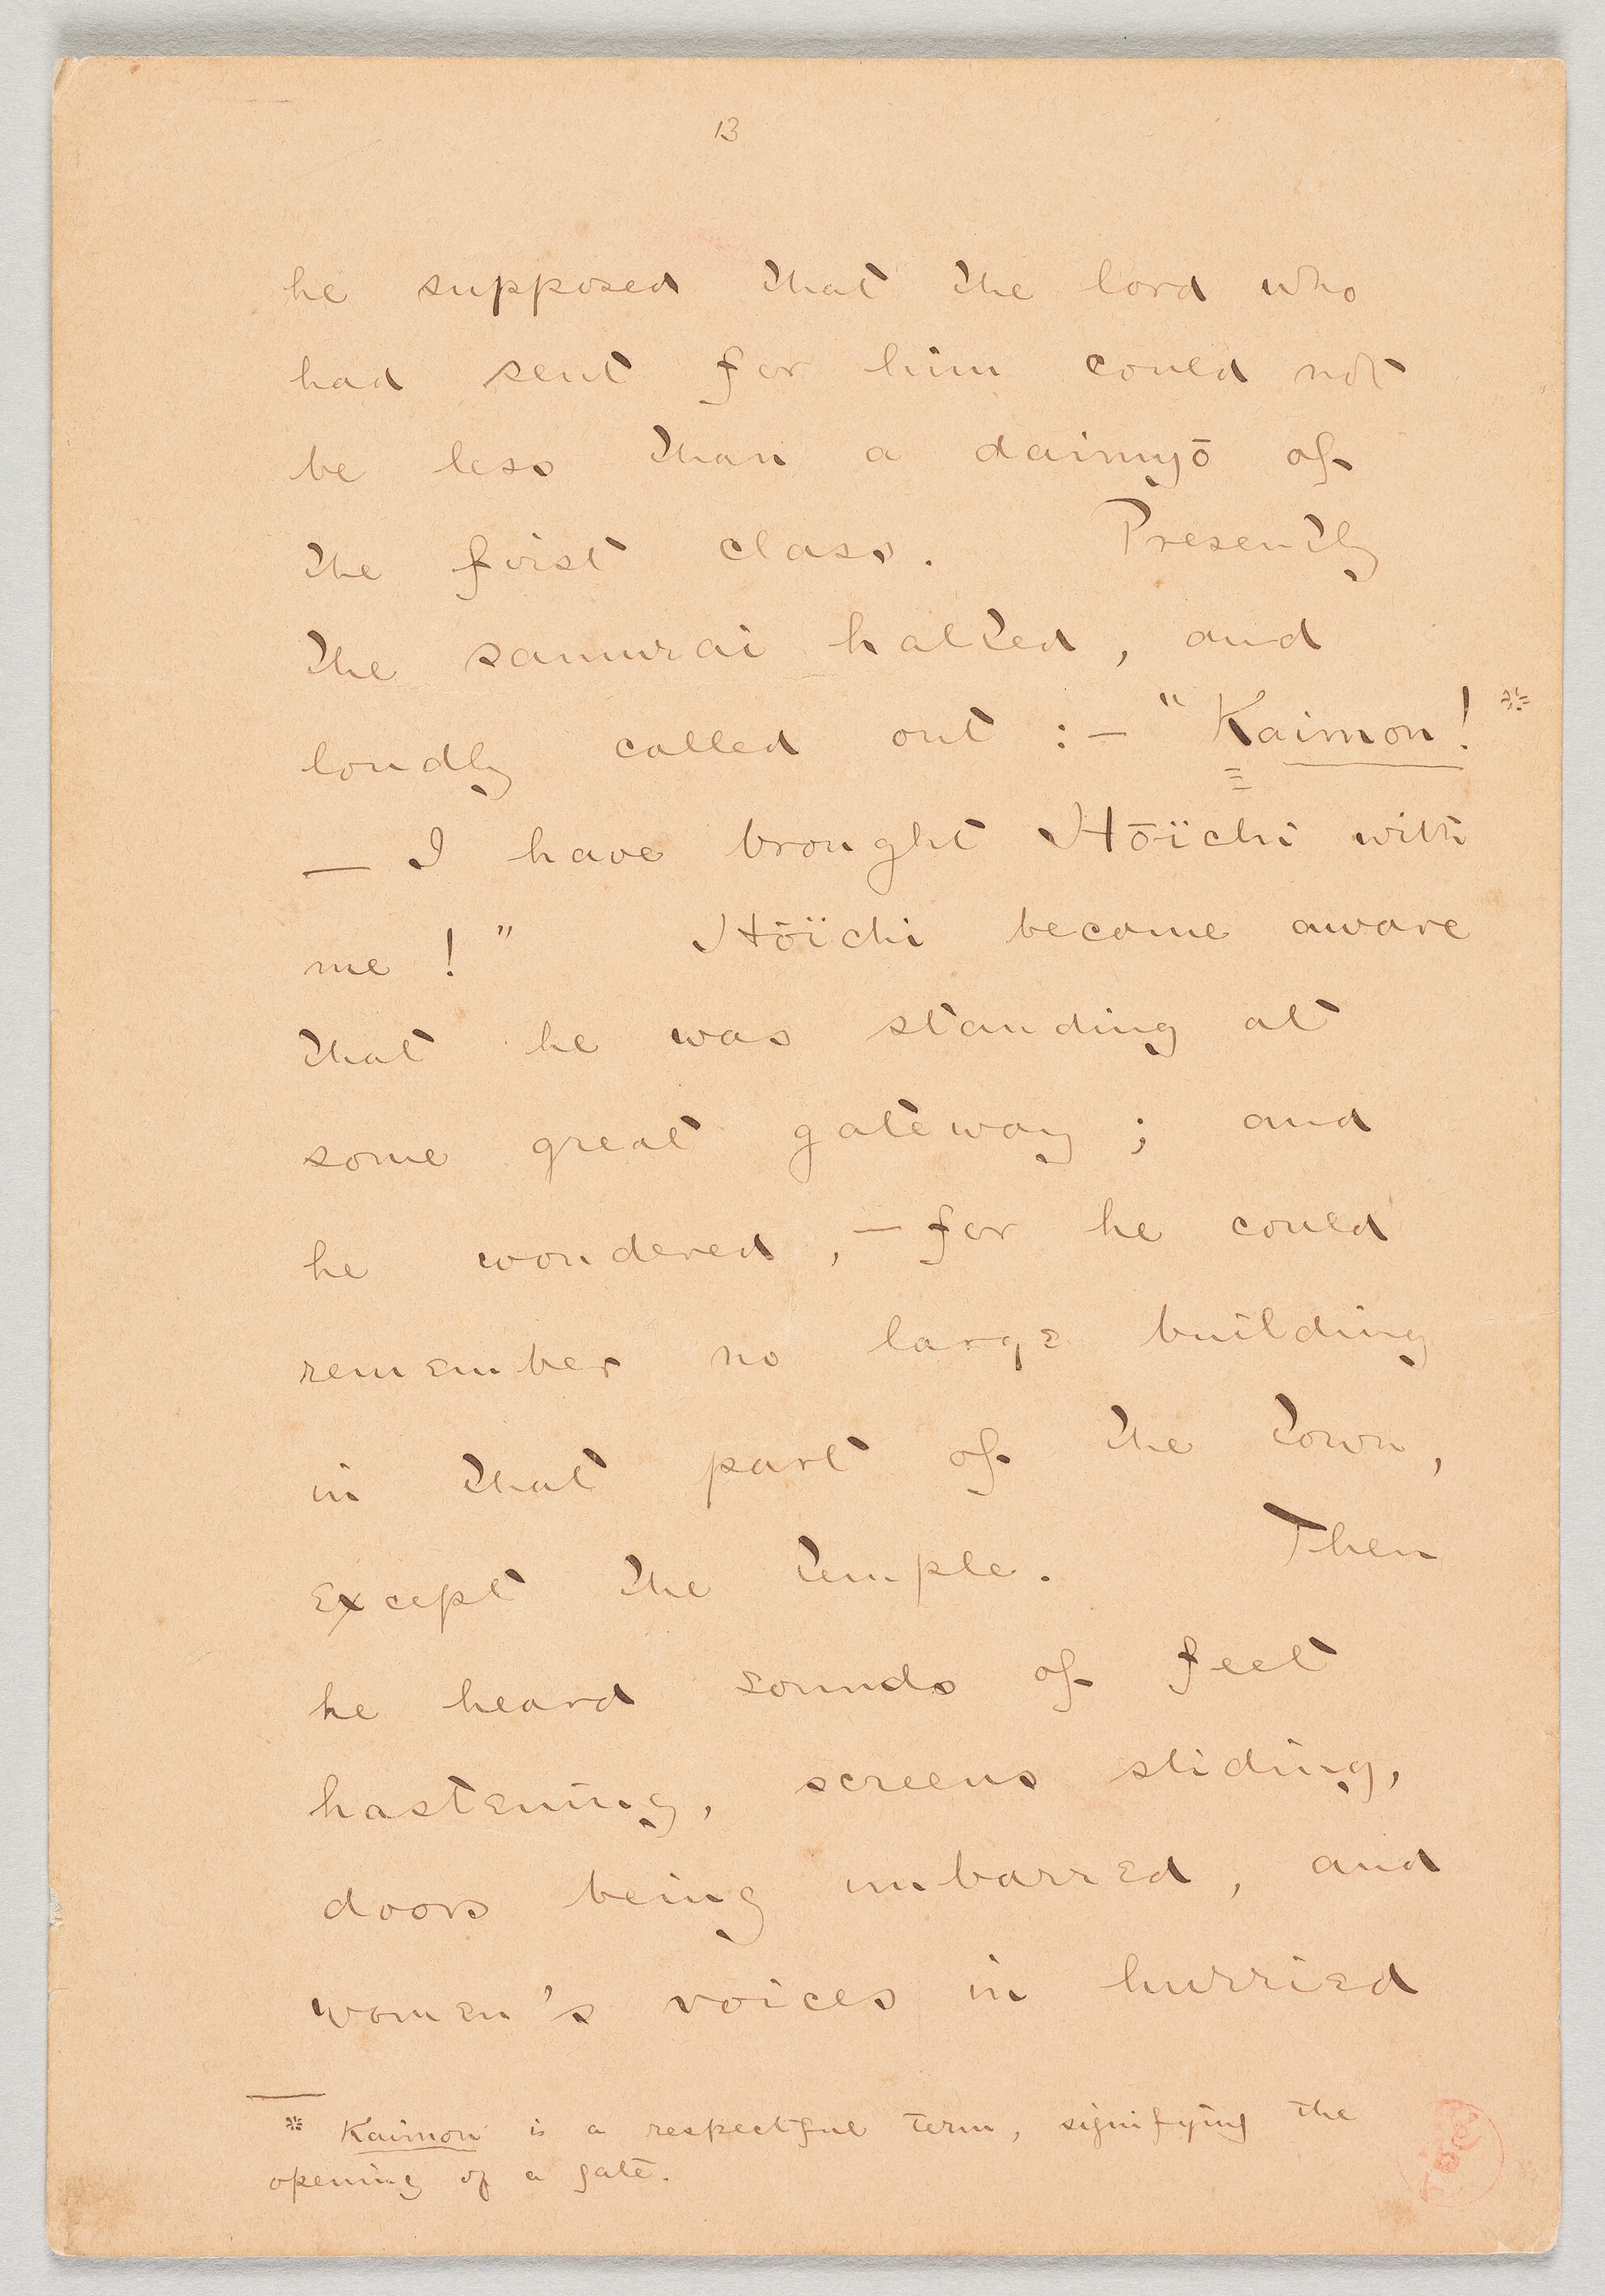 13
he supposed that the lord who
had sent for him could not
be less than a daimyō of
the first class. Presently
the samurai halted, and
loudly called out :— "Kaimon! *
— I have brought Hōïchi with
me ! " Hōïchi become aware
that he was standing at
some great gateway ; and
he wondered , — for he could
remember no large building
in that part of the town,
except the temple. Then
he heard sounds of feet
hastening, screens sliding,
doors being unbarred, and
women's voices in hurried
* Kaimon is a respectful term, signifying the
opening of a gate.